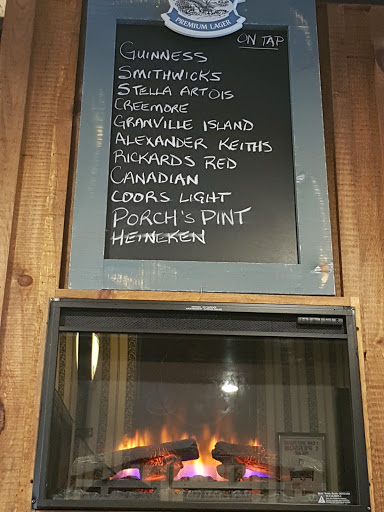 PREMIUM LAGER
ON TAP
GUINNESS
SMITHWICKS
STELLA ARTOIS
CREEMORE
GRANVILLE ISLAND
ALEXANDER KEITHS
RICKARDS RED
CANADIAN
COORS LIGHT
PORCH'S PINT
HEINEKEN